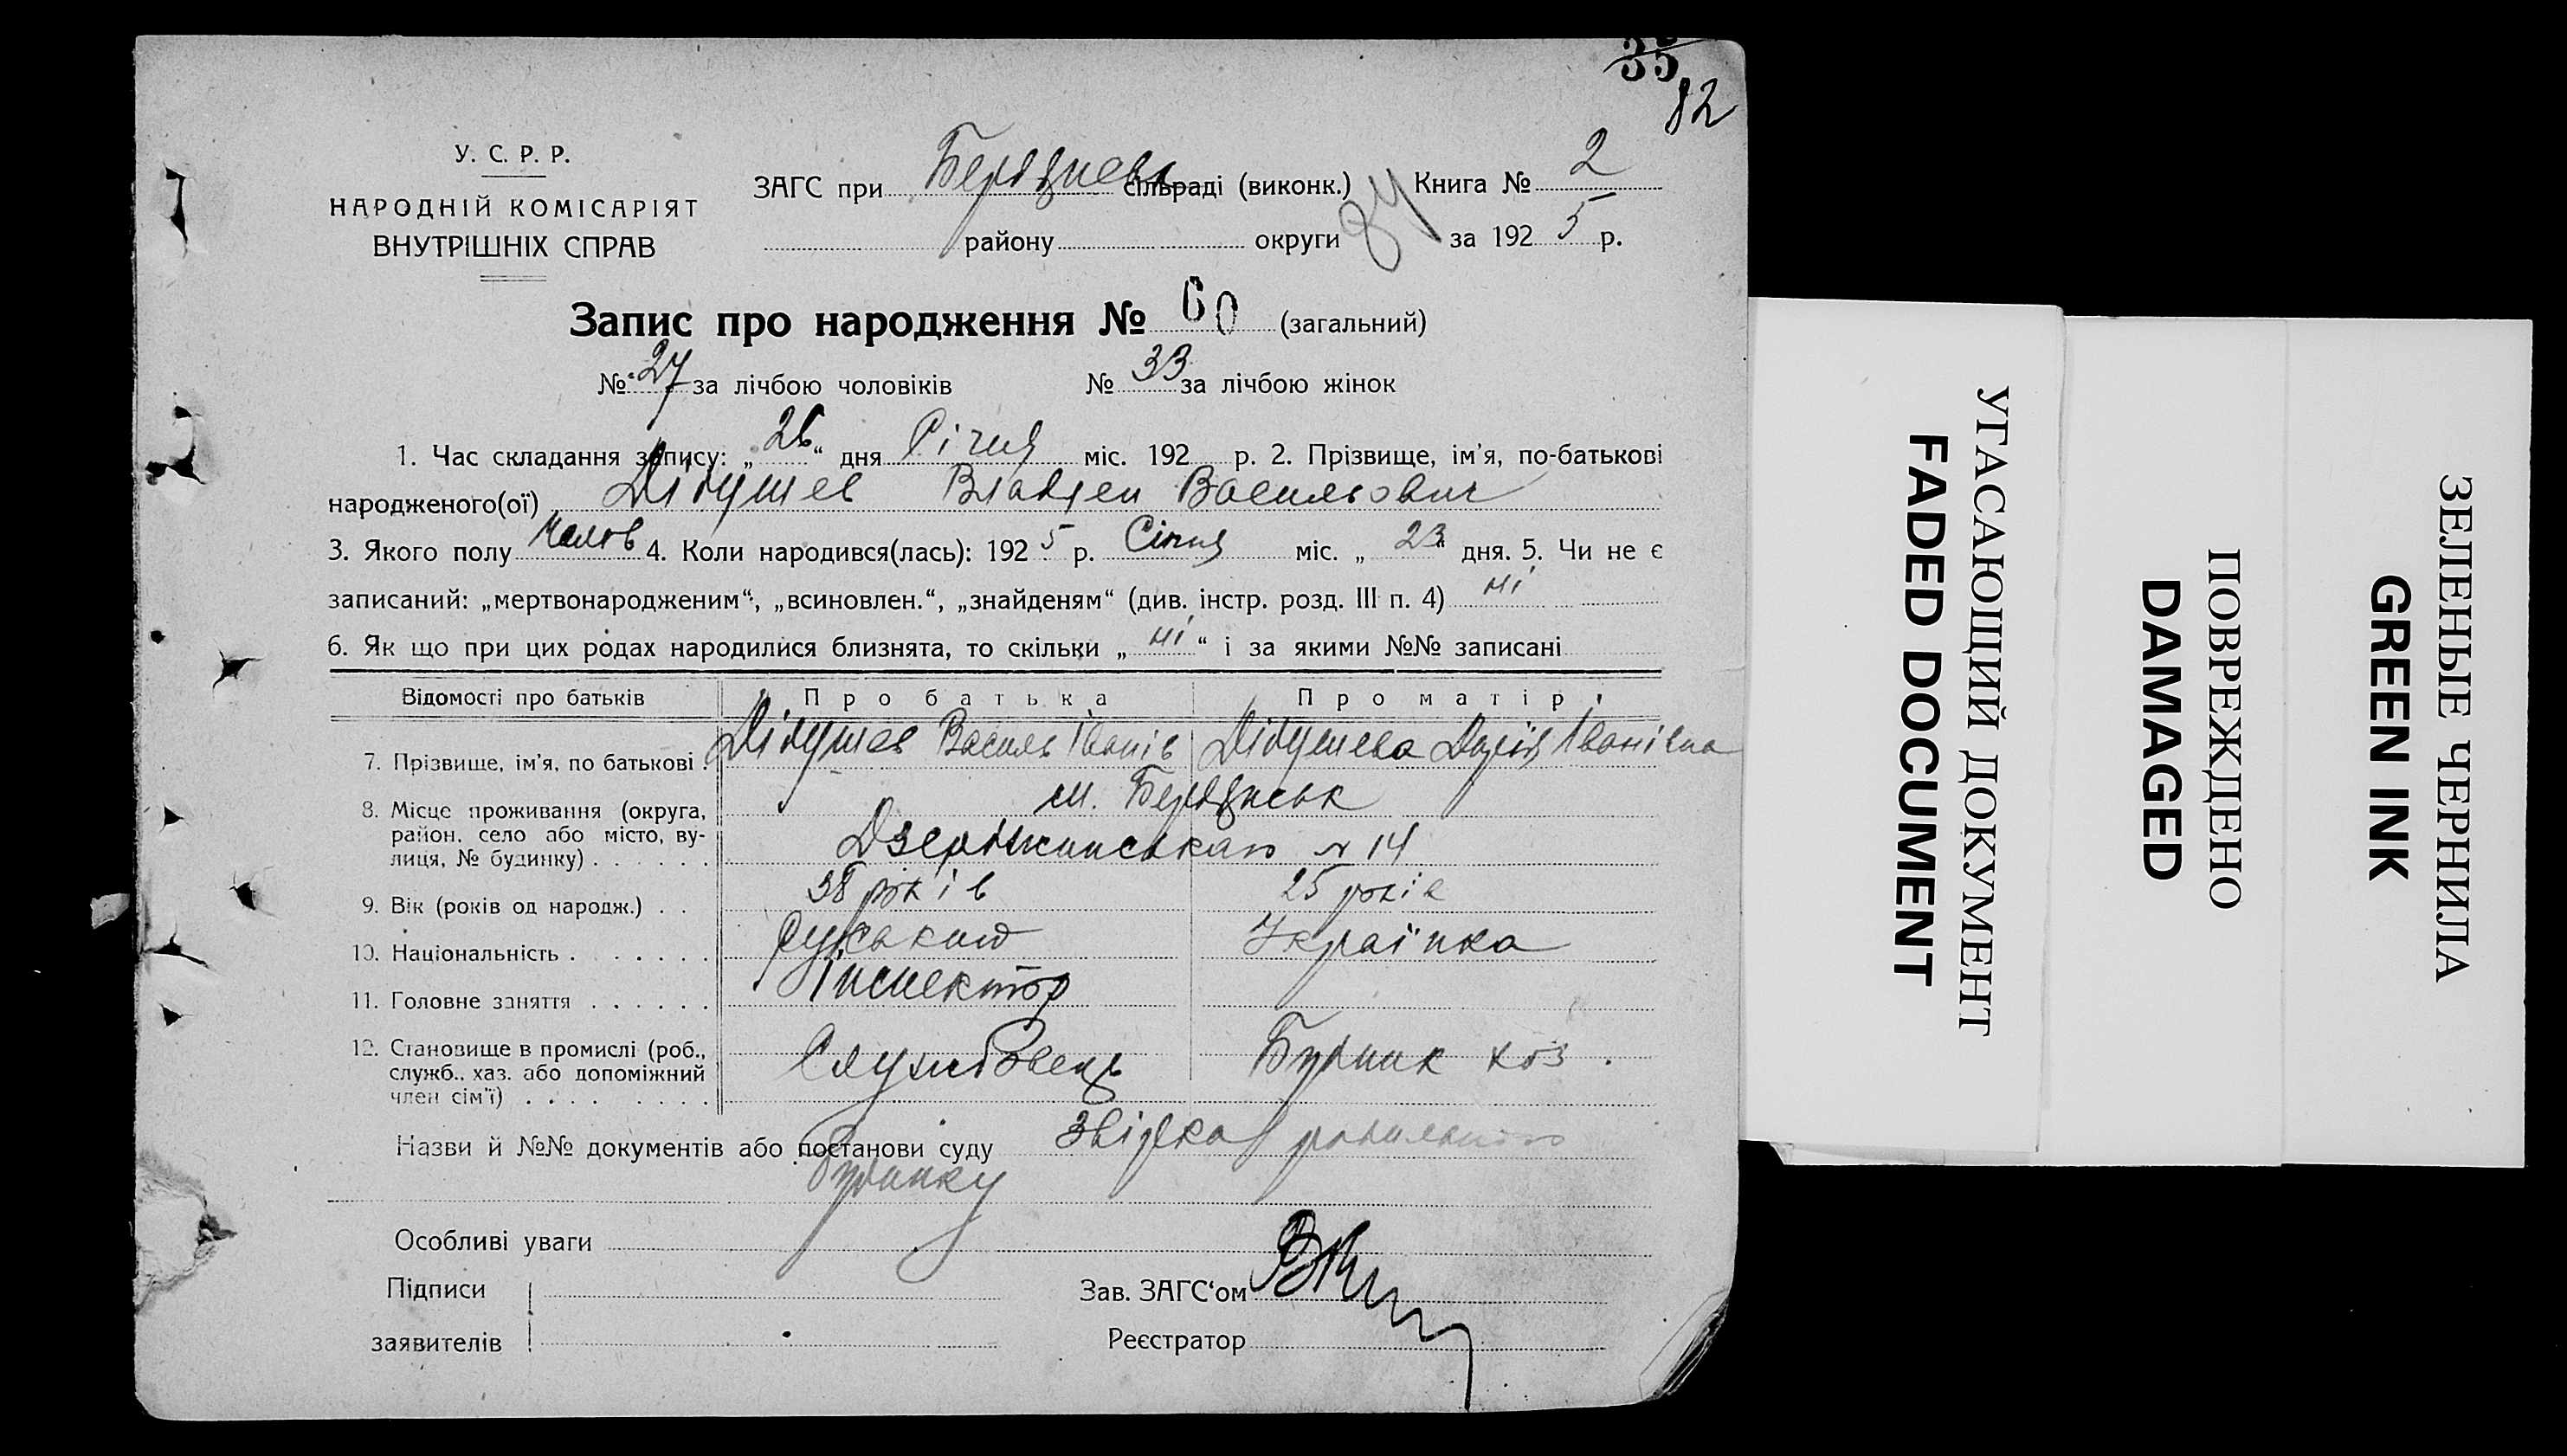 35
82
У. С. Р. Р.
НАРОДНІЙ КОМІСАРІЯТ
ВНУТРІШНІХ СПРАВ
ЗАГС при сільраді (виконк.) Книга № 2
району округи за 1925 р.
Запис про народження № 60 (загальний)
№ 27 за лічбою чоловіків № 33 за лічбою жінок
1. Час складання запису: „26“ дня Січня міс. 192 р. 2. Прізвище, ім'я, по-батькові
народженого(ої) Дідушев Владлен Васильович
3. Якого полу чолов 4. Коли народився(лась): 1925 р. Січня міс. „23“ дня. 5. Чи не є
записаний: „мертвонародженим“, „всиновлен.“, „знайденям“ (див. інстр. розд. III п. 4) ні
6. Як що при цих родах народилися близнята, то скільки „ні“ і за якими №№ записані
Відомості про батьків Про батька Про матір
7. Прізвище, ім'я, по батькові . Дідушев Василь Іванів Дідушева Дарія Іванівна
8. Місце проживання (округа, м. Бердянськ
район, село або місто, ву-
лиця, № будинку) . . . . . . Дзержинського № 14
9. Вік (років од народж.) . . 38 років 25 років
10. Національність . . . . . . . Руський Українка
11. Головне заняття . . . . . . Інспектор
12. Становище в промислі (роб., Службовець Будинк хоз.
служб., хаз. або допоміжний
член сім'ї) . . . . . . . .
Назви й №№ документів або постанови суду Звідка родильного
будинку
Особливі уваги
Підписи
заявителів
Зав. ЗАГС'ом
Реєстратор
УГАСАЮЩИЙ ДОКУМЕНТ
FADED DOCUMENT
ПОВРЕЖДЕНО
DAMAGED
ЗЕЛЕНЫЕ ЧЕРНИЛА
GREEN INK